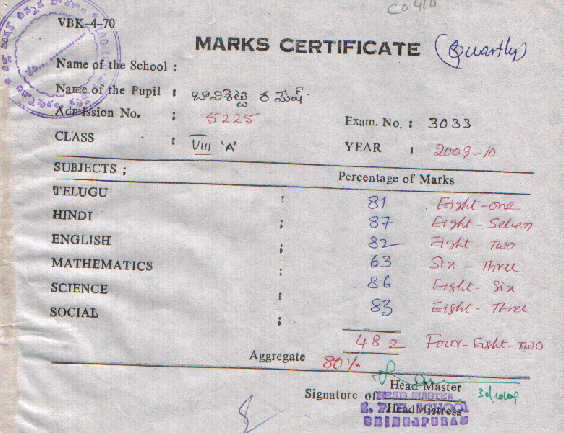 VBK-4-70
MARKS CERTIFICATE (Quartly)
Name of the School :
Name of the Pupil :
Admission No. : 5225
Exam. No. : 3033
CLASS : VIII 'A'
YEAR : 2009-10
SUBJECTS ;
Percentage of Marks
TELUGU : 81 Eight-one
HINDI ; 87 Eight-Seven
ENGLISH ; 82 Eight Two
MATHEMATICS : 63 Six Three
SCIENCE : 86 Eight-Six
SOCIAL ; 83 Eight-Three
482 Four-Eight-Two
Aggregate 80%
Signature of Head Master
HEAD MASTER
Head Mistress